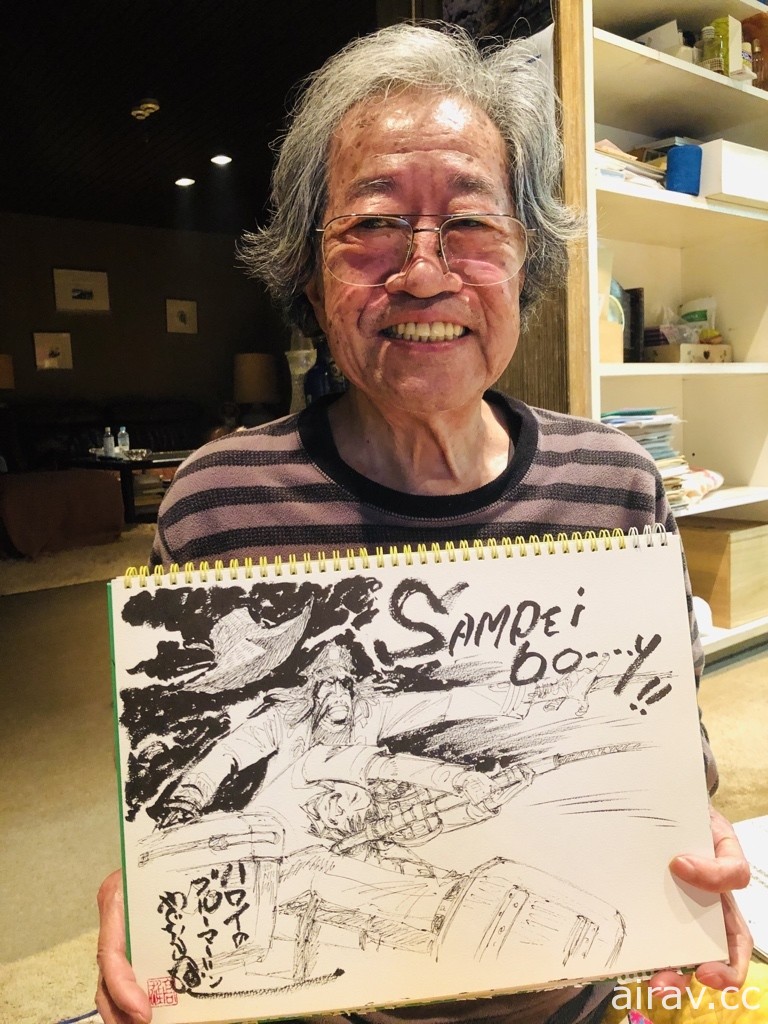 SAMPEi
bo····y!!
ハワイの
ブルーマーリン
airav.cc